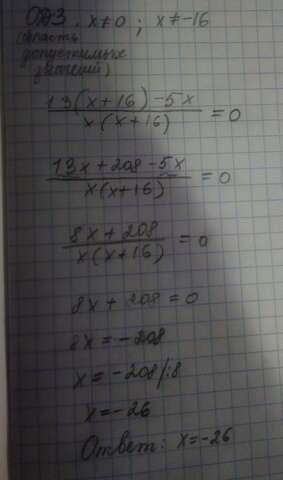 ОДЗ. x≠0 ; x≠-16
(область
допустимых
значений)
13(x+16)-5x / x(x+16) = 0
13x+208-5x / x(x+16) = 0
8x+208 / x(x+16) = 0
8x + 208 = 0
8x = -208
x = -208/:8
x = -26
Ответ: x=-26